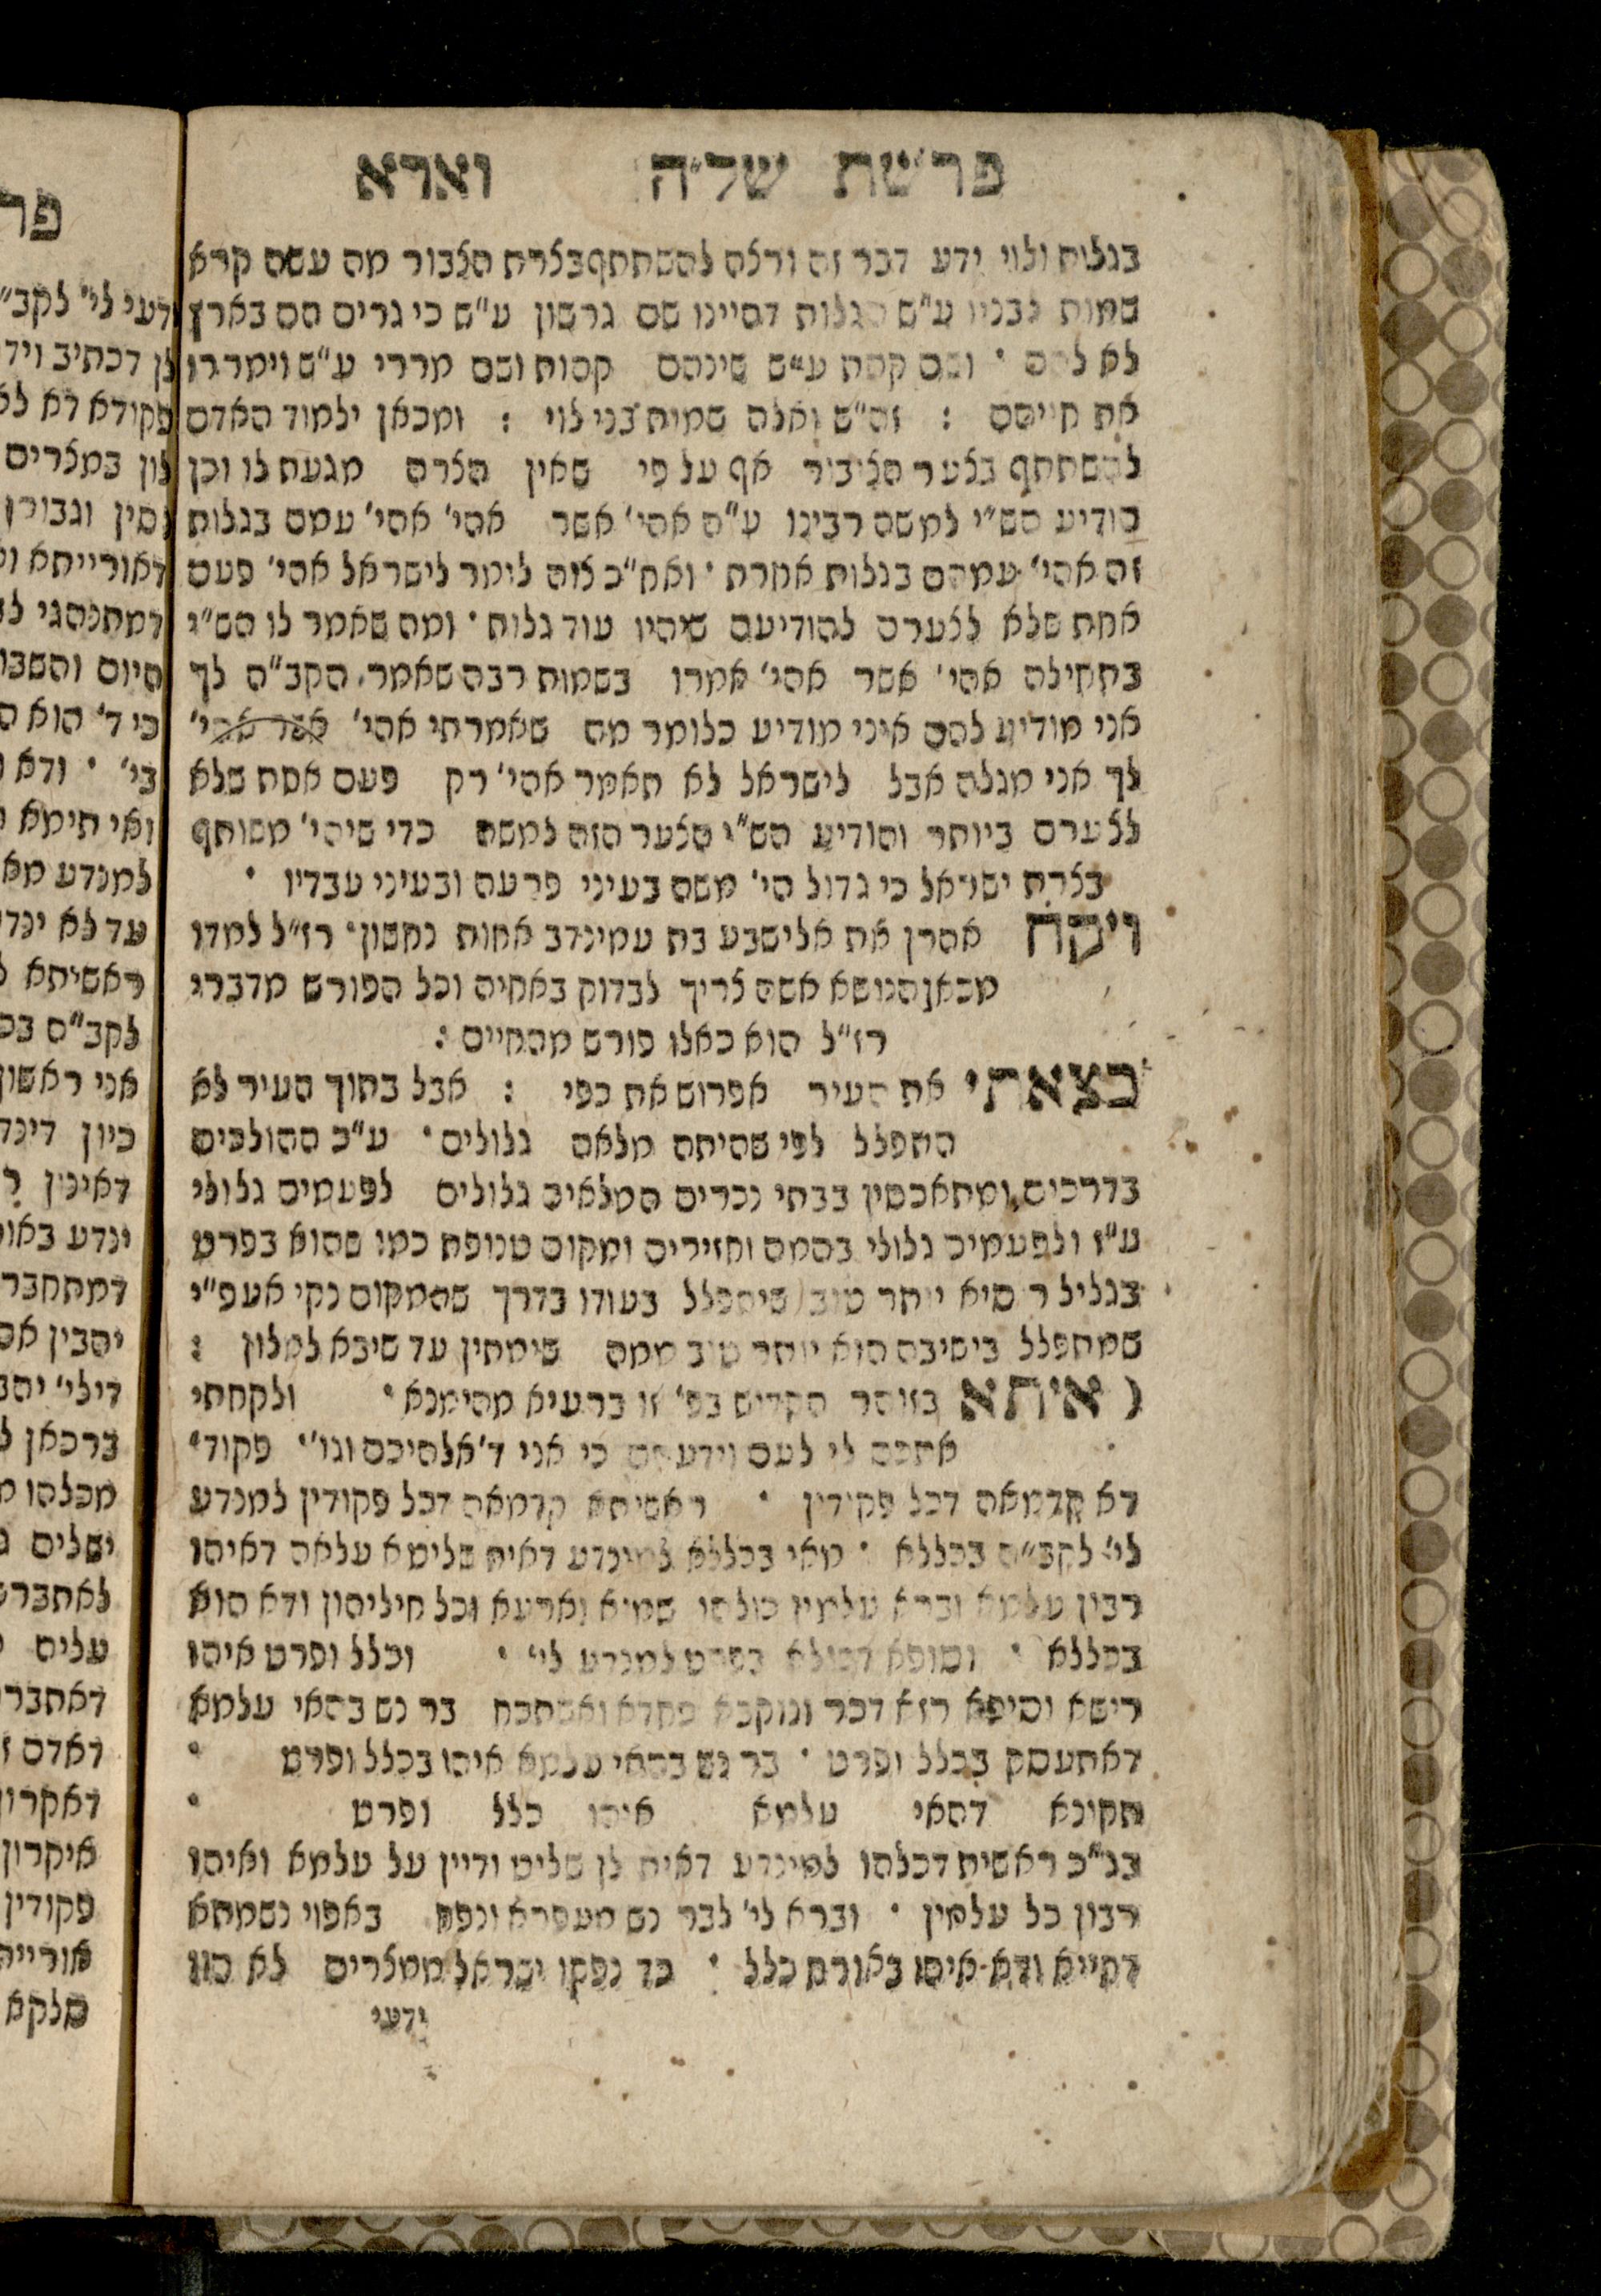 פרשת של״ה וארא
בגלות ולוי ידע דבר זה ורצה להשתתף בצרת הצבור מה עשה קרא
שמות לבניו ע״ש הגלות דהיינו שם גרשון ע״ש כי גרים הם בארץ
לא להם · ושם קהת ע״ש שינהם קהות ושם מררי ע״ש וימררו
את חייהם : זה״ש ואלה שמות בני לוי : ומכאן ילמוד האדם
להשתתף בצער הציבור אף על פי שאין הצרה מגעת לו וכן
הודיע הש״י למשה רבינו ע״ה אהי׳ אשר אהי׳ אהי׳ עמם בגלות
זה אהי׳ עמהם בגלות אחרת · ואח״כ צוה לומר לישראל אהי׳ פעם
אחת שלא לצערם להודיעם שיהיו עוד גלות · ומה שאמר לו הש״י
בתחילה אהי׳ אשר אהי׳ אמרו בשמות רבה שאמר הקב״ה לך
אני מודיע להם איני מודיע כלומר מה שאמרתי אהי׳ אשר אהי׳
לך אני מגלה אבל לישראל לא תאמר אהי׳ רק פעם אחת שלא
לצערם ביותר והודיע הש״י הצער הזה למשה כדי שיהי׳ משותף
בצרת ישראל כי גדול הי׳ משה בעיני פרעה ובעיני עבדיו ·
ויקח אהרן את אלישבע בת עמינדב אחות נחשון · רז״ל למדו
מכאן הנושא אשה צריך לבדוק באחיה וכל הפורש מדברי
רז״ל הוא כאלו פורש מהחיים :
כצאתי את העיר אפרוש את כפי : אבל בתוך העיר לא
התפלל לפי שהיתה מלאה גלולים · ע״כ ההולכים
בדרכים ומתאכסין בבתי נכרים המלאים גלולים לפעמים גלולי
ע״ז ולפעמים גלולי בהמה וחזירים ומקום טנופת כמו שהוא בפרט
בגליל רוסיא יותר טוב שיתפלל בעודו בדרך שהמקום נקי אעפ״י
שמתפלל בישיבה הוא יותר טוב ממה שימתין עד שיבא למלון :
( איתא בזוהר הקדוש בפ׳ זו ברעיא מהימנא · ולקחתי
אתכם לי לעם וידעתם כי אני ד׳ אלהיכם וגו׳ · פקוד׳
דא קדמאה דכל פקודין · ראשיתא קדמאה דכל פקודין למנדע
לי׳ לקב״ה בכללא · מאי בכללא למינדע דאית שליטא עלאה דאיהו
רבון עלמא וברא עלמין כולהו שמיא וארעא וכל חיליהון ודא הוא
בכללא · וסופא דכולא בפרט למנדע לי׳ · וכלל ופרט איהו
רישא וסיפא רזא דכר ונוקבא כחדא ואשתכח בר נש בהאי עלמא
דאתעסק בכלל ופרט · בר נש בהאי עלמא איהו בכלל ופרט ·
תקונא דהאי עלמא איהו כלל ופרט ·
בג״כ ראשית דכלהו למינדע דאית לן שליט ודיין על עלמא ואיהו
רבון כל עלמין · וברא לי׳ לבר נש מעפרא ונפח באפוי נשמתא
דחייא ודא איהו באורח כלל : כד נפקו ישראל ממצרים לא הוו
ידעי